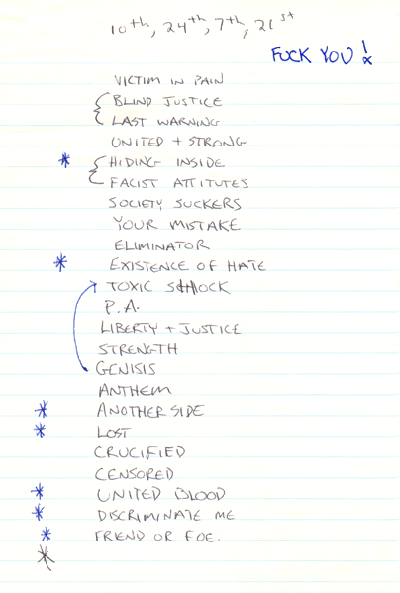 10th, 24th, 7th, 21st
FUCK YOU!
VICTIM IN PAIN
BLIND JUSTICE
LAST WARNING
UNITED + STRONG
* HIDING INSIDE
FACIST ATTITUTES
SOCIETY SUCKERS
YOUR MISTAKE
ELIMINATOR
* EXISTENCE OF HATE
TOXIC SHOCK
P.A.
LIBERTY + JUSTICE
STRENGTH
GENISIS
ANTHEM
* ANOTHER SIDE
* LOST
CRUCIFIED
CENSORED
* UNITED BLOOD
* DISCRIMINATE ME
* FRIEND OR FOE.
*